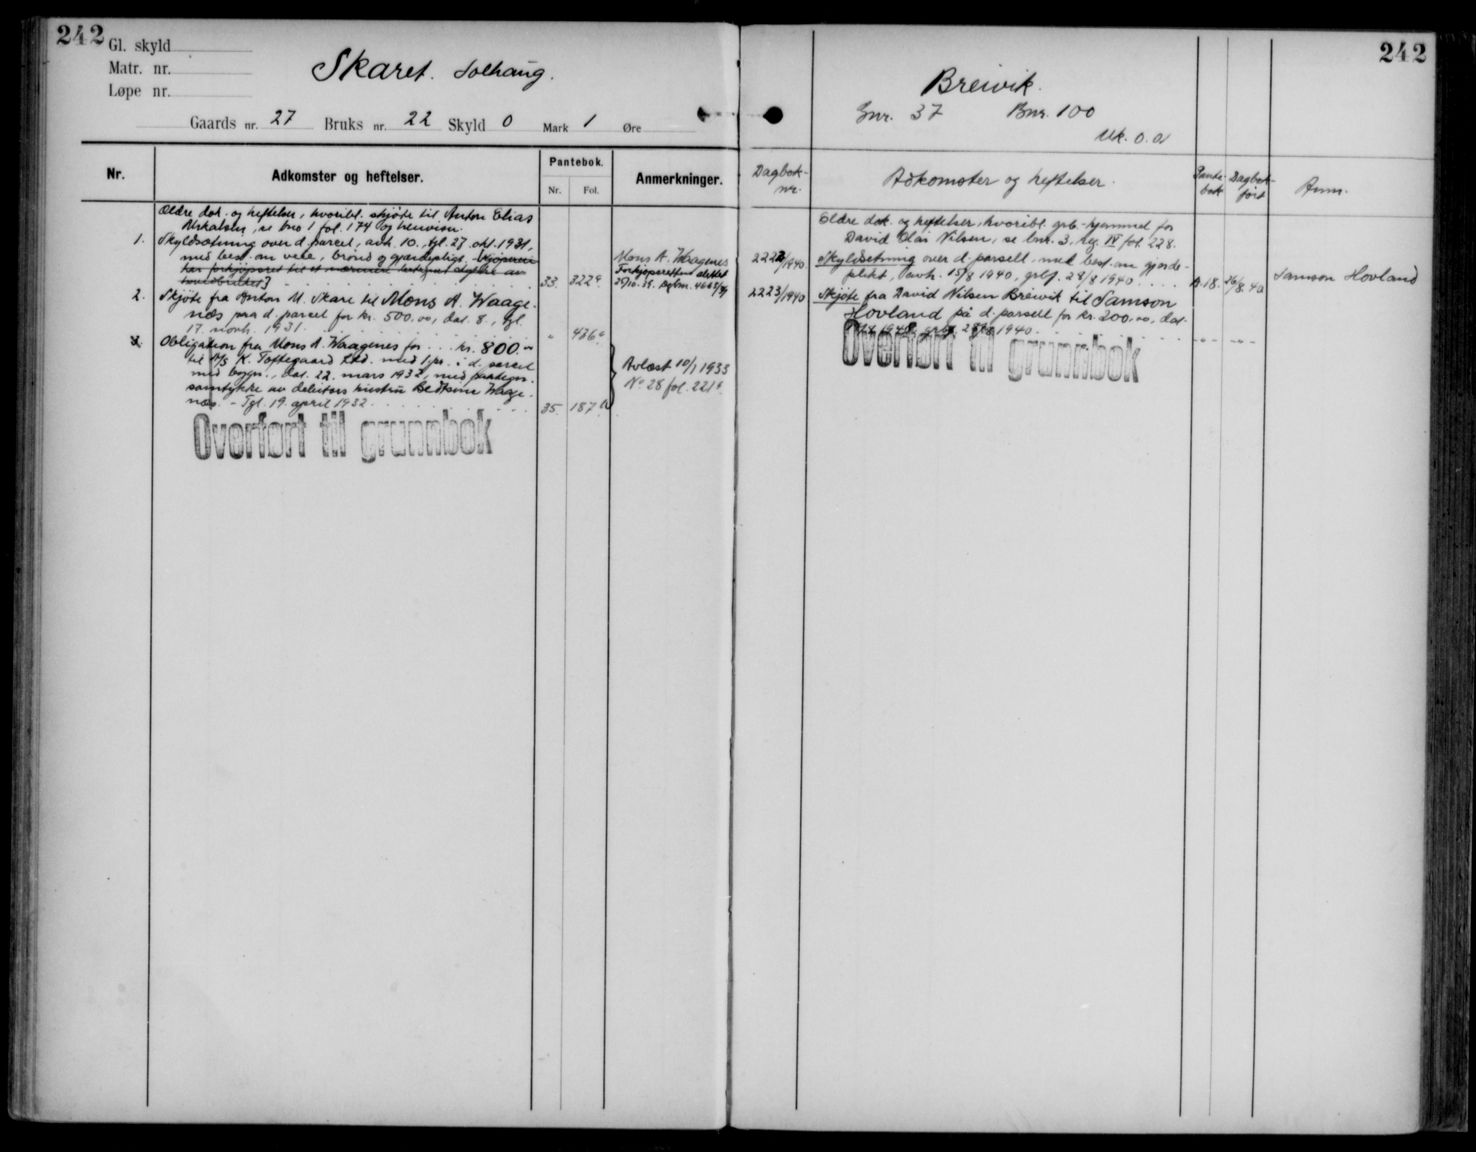 242
Gl. skyld
Matr. nr.
Løpe nr.
Skaret. Solhaug.
Gaards nr. 27 Bruks nr. 22 Skyld 0 Mark 1 Øre
Nr. Adkomster og heftelser. Pantebok. Nr. Fol. Anmerkninger.
Ældre dok. og heftelser, hvoribl. skjøte til Anton Elias
se bno 1 fol. 174 og henvisn.
1. Skyldsetning over d. parcel, avh. 10., tgl. 27. okt. 1931,
med best. om veie, brønd og gjærdepligt. Kjøperen
har forkjøpsret til et nærmere betegnet stykke av
hovedbruket] 33. 322a
Mons A. Waagenes
Forkjøpsretten slettet
2. Skjøte fra Anton M. Skare til Mons A. Waage-
næs paa d. parcel for kr. 500.00, dat. 8., tgl.
17. novb. 1931 " 436a
3. Obligation fra Mons A. Waagenes for kr. 800.00
til A/s K. Toftegaard Ltd. med 1 pr. i d. parcel
med bygn., dat. 22. mars 1932, med paategn.
samtykke av debitors hustru Waage-
næs. - Tgl. 19. april 1932 35. 187a
Avlæst 10/1 1933
No 28 fol. 221a
Overført til grunnbok
242
Breivik.
Gnr. 37 Bnr. 100
Mk. 0.01
Dagbok-
nr. Adkomster og heftelser. Pante-
bok Dagbok-
ført Anm.
Eldre dok. og heftelser, hvoribl. grb.-hjemmel for
David Olai Nilsen, se bnr. 3, reg. IV fol. 228.
2222/1940 Skyldsetning over d. parsell med best. om gjerde-
plikt, avh. 15/8 1940, grlf. 28/8 1940 A 18. 26/8.40 Samson Hovland
2223/1940 Skjøte fra David Nilsen Breivik til Samson
Hovland på d. parsell for kr. 200.00, dat.
1940
Overført til grunnbok